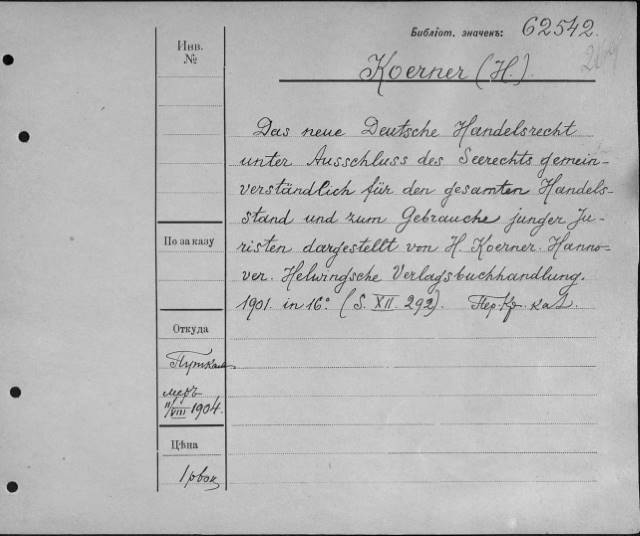 Библіот. значенъ: 62542.
Инв.
№
Koerner (H.).
Das neue Deutsche Handelsrecht
unter Ausschluss des Seerechts gemein-
verständlich für den gesamten Handels-
stand und zum Gebrauche junger Ju-
По заказу
risten dargestellt von H. Koerner. Hanno-
ver. Helwingsche Verlagsbuchhandlung.
1901. in 16° (S. XII. 292). Пер. Кр. кал.
Откуда
меръ
11/VIII 1904.
Цѣна